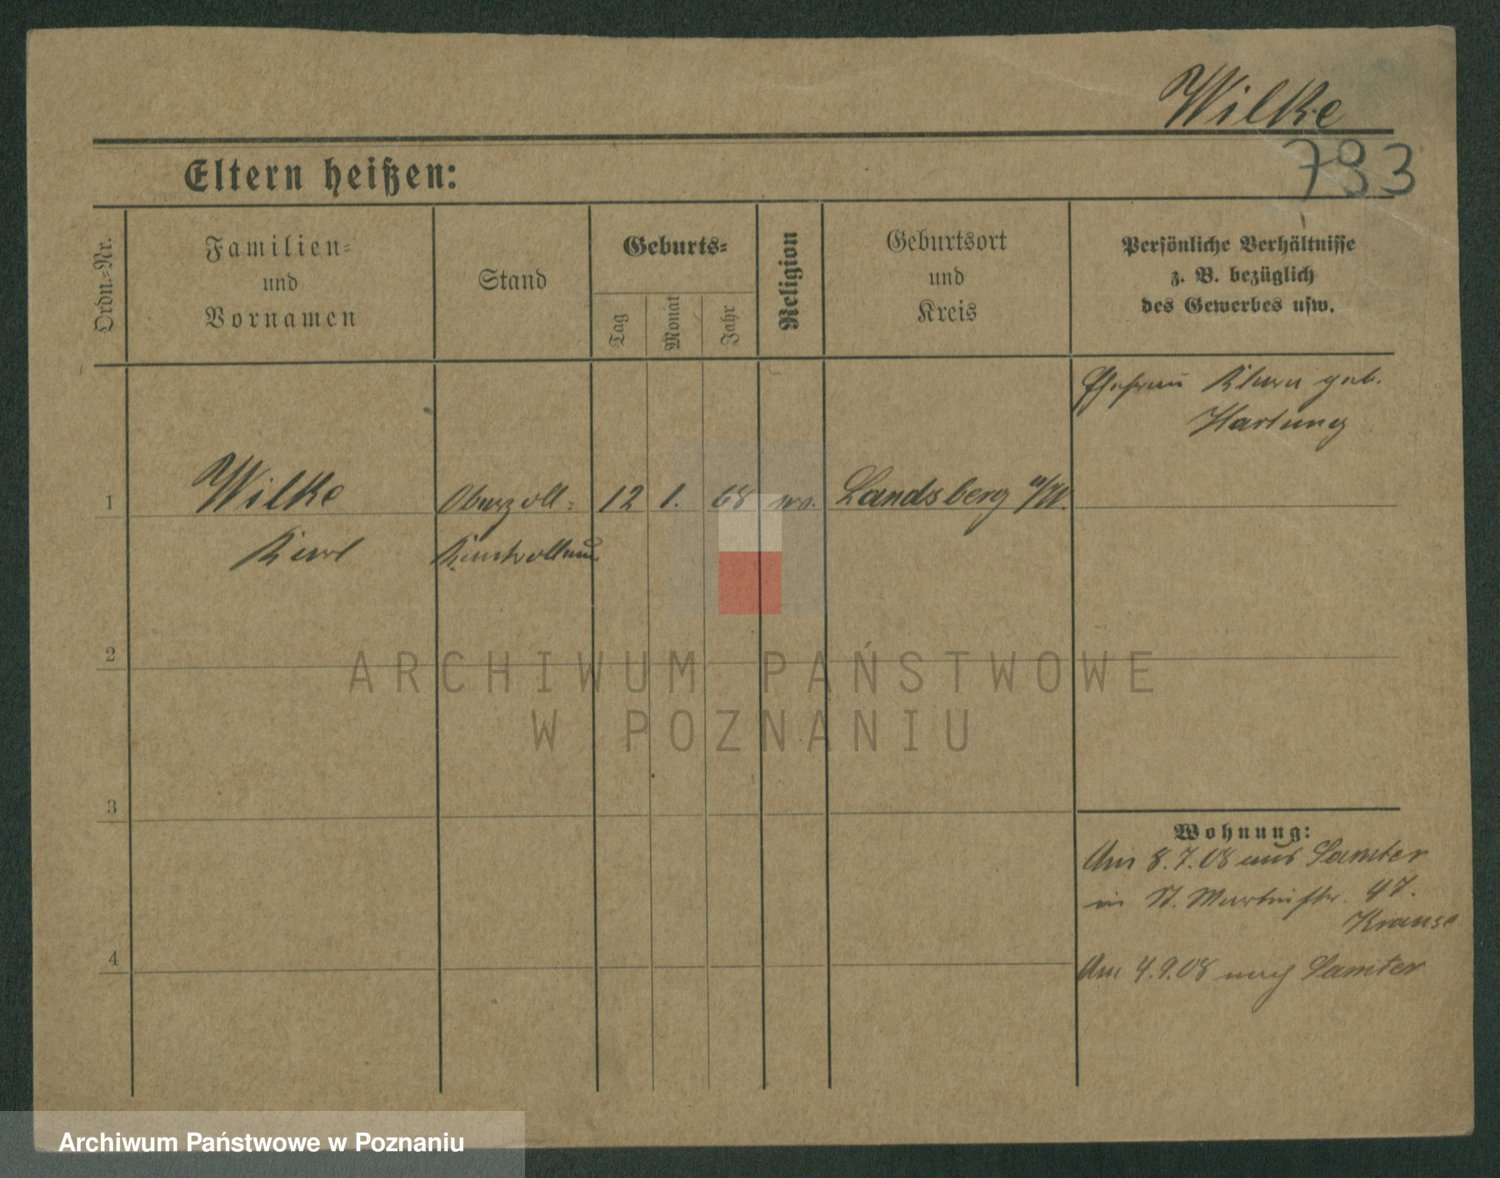 Wilke
793
Eltern heißen:
Ordn.-Nr.
Familien-
und
Vornamen
Stand
Geburts-
Tag
Monat
Jahr
Religion
Geburtsort
und
Kreis
Persönliche Verhältnisse
z. B. bezüglich
des Gewerbes usw.
Ehefrau Klara geb.
Hartung
1
Wilke
Oberzoll-
12
1.
68
Landsberg a/W.
Karl
Kontrolleur
2
ARCHIWUM PAŃSTWOWE
W POZNANIU
3
Wohnung:
Am 8.7.08 aus Samter
in St. Martinstr. 47.
Krause
4
Am 4.9.08 nach Samter
Archiwum Państwowe w Poznaniu